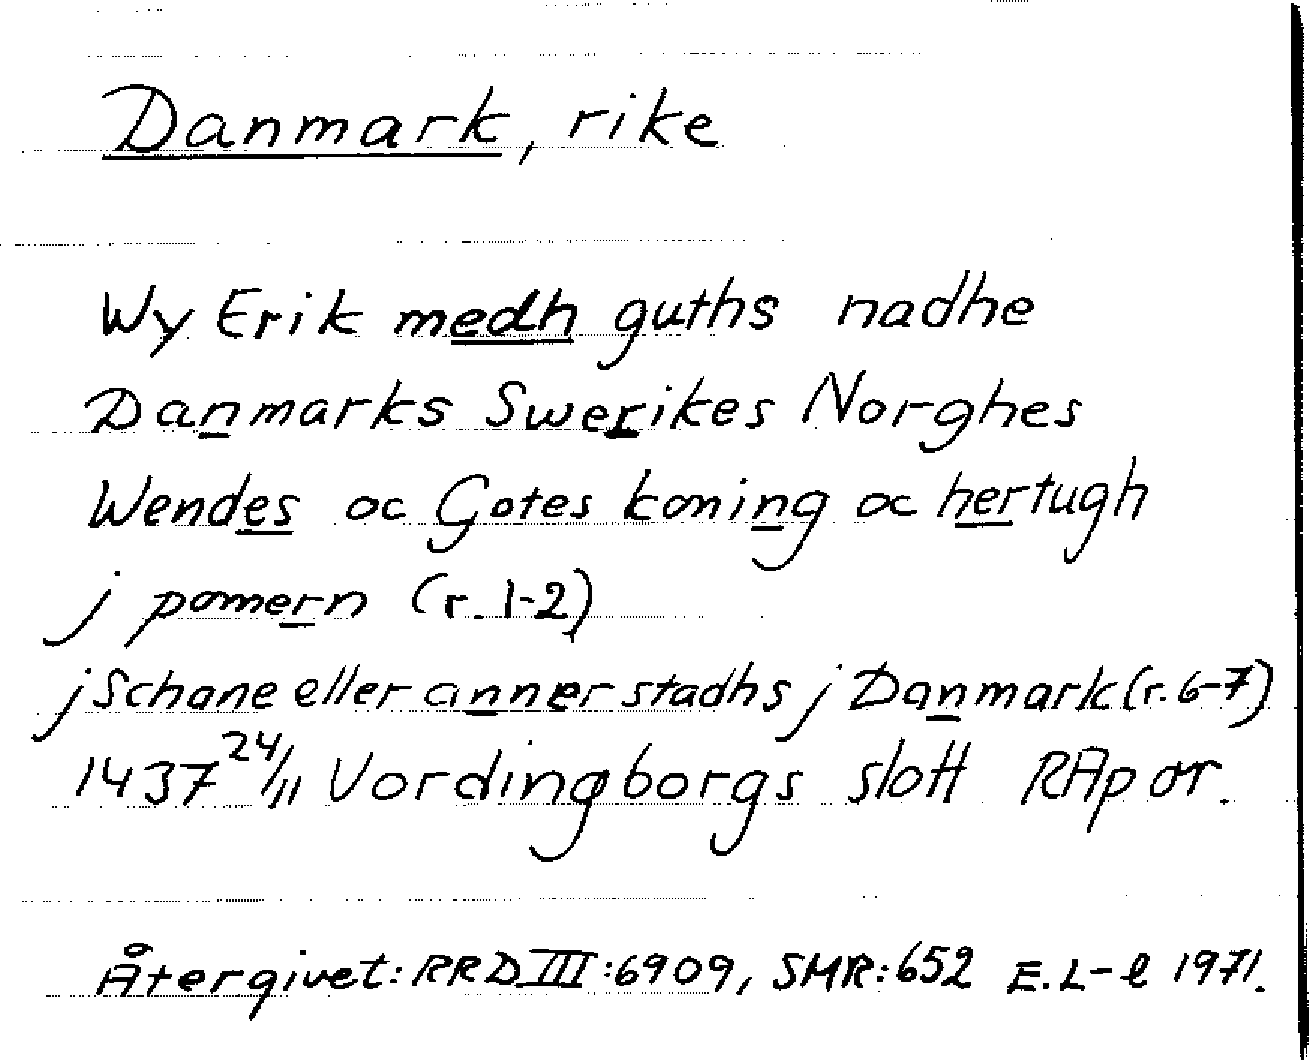 Danmark, rike
Wy Erik medh guths nadhe
Danmarks Swerikes Norghes
Wendes oc Gotes koning oc hertugh
j pomern (r. 1-2)
j Schane eller anner stadhs j Danmark (r. 6-7)
1437 24/11 Vordingborgs slott RAp or.
Återgivet: RRD III: 6909, SMR: 652 E. L-l 1971.